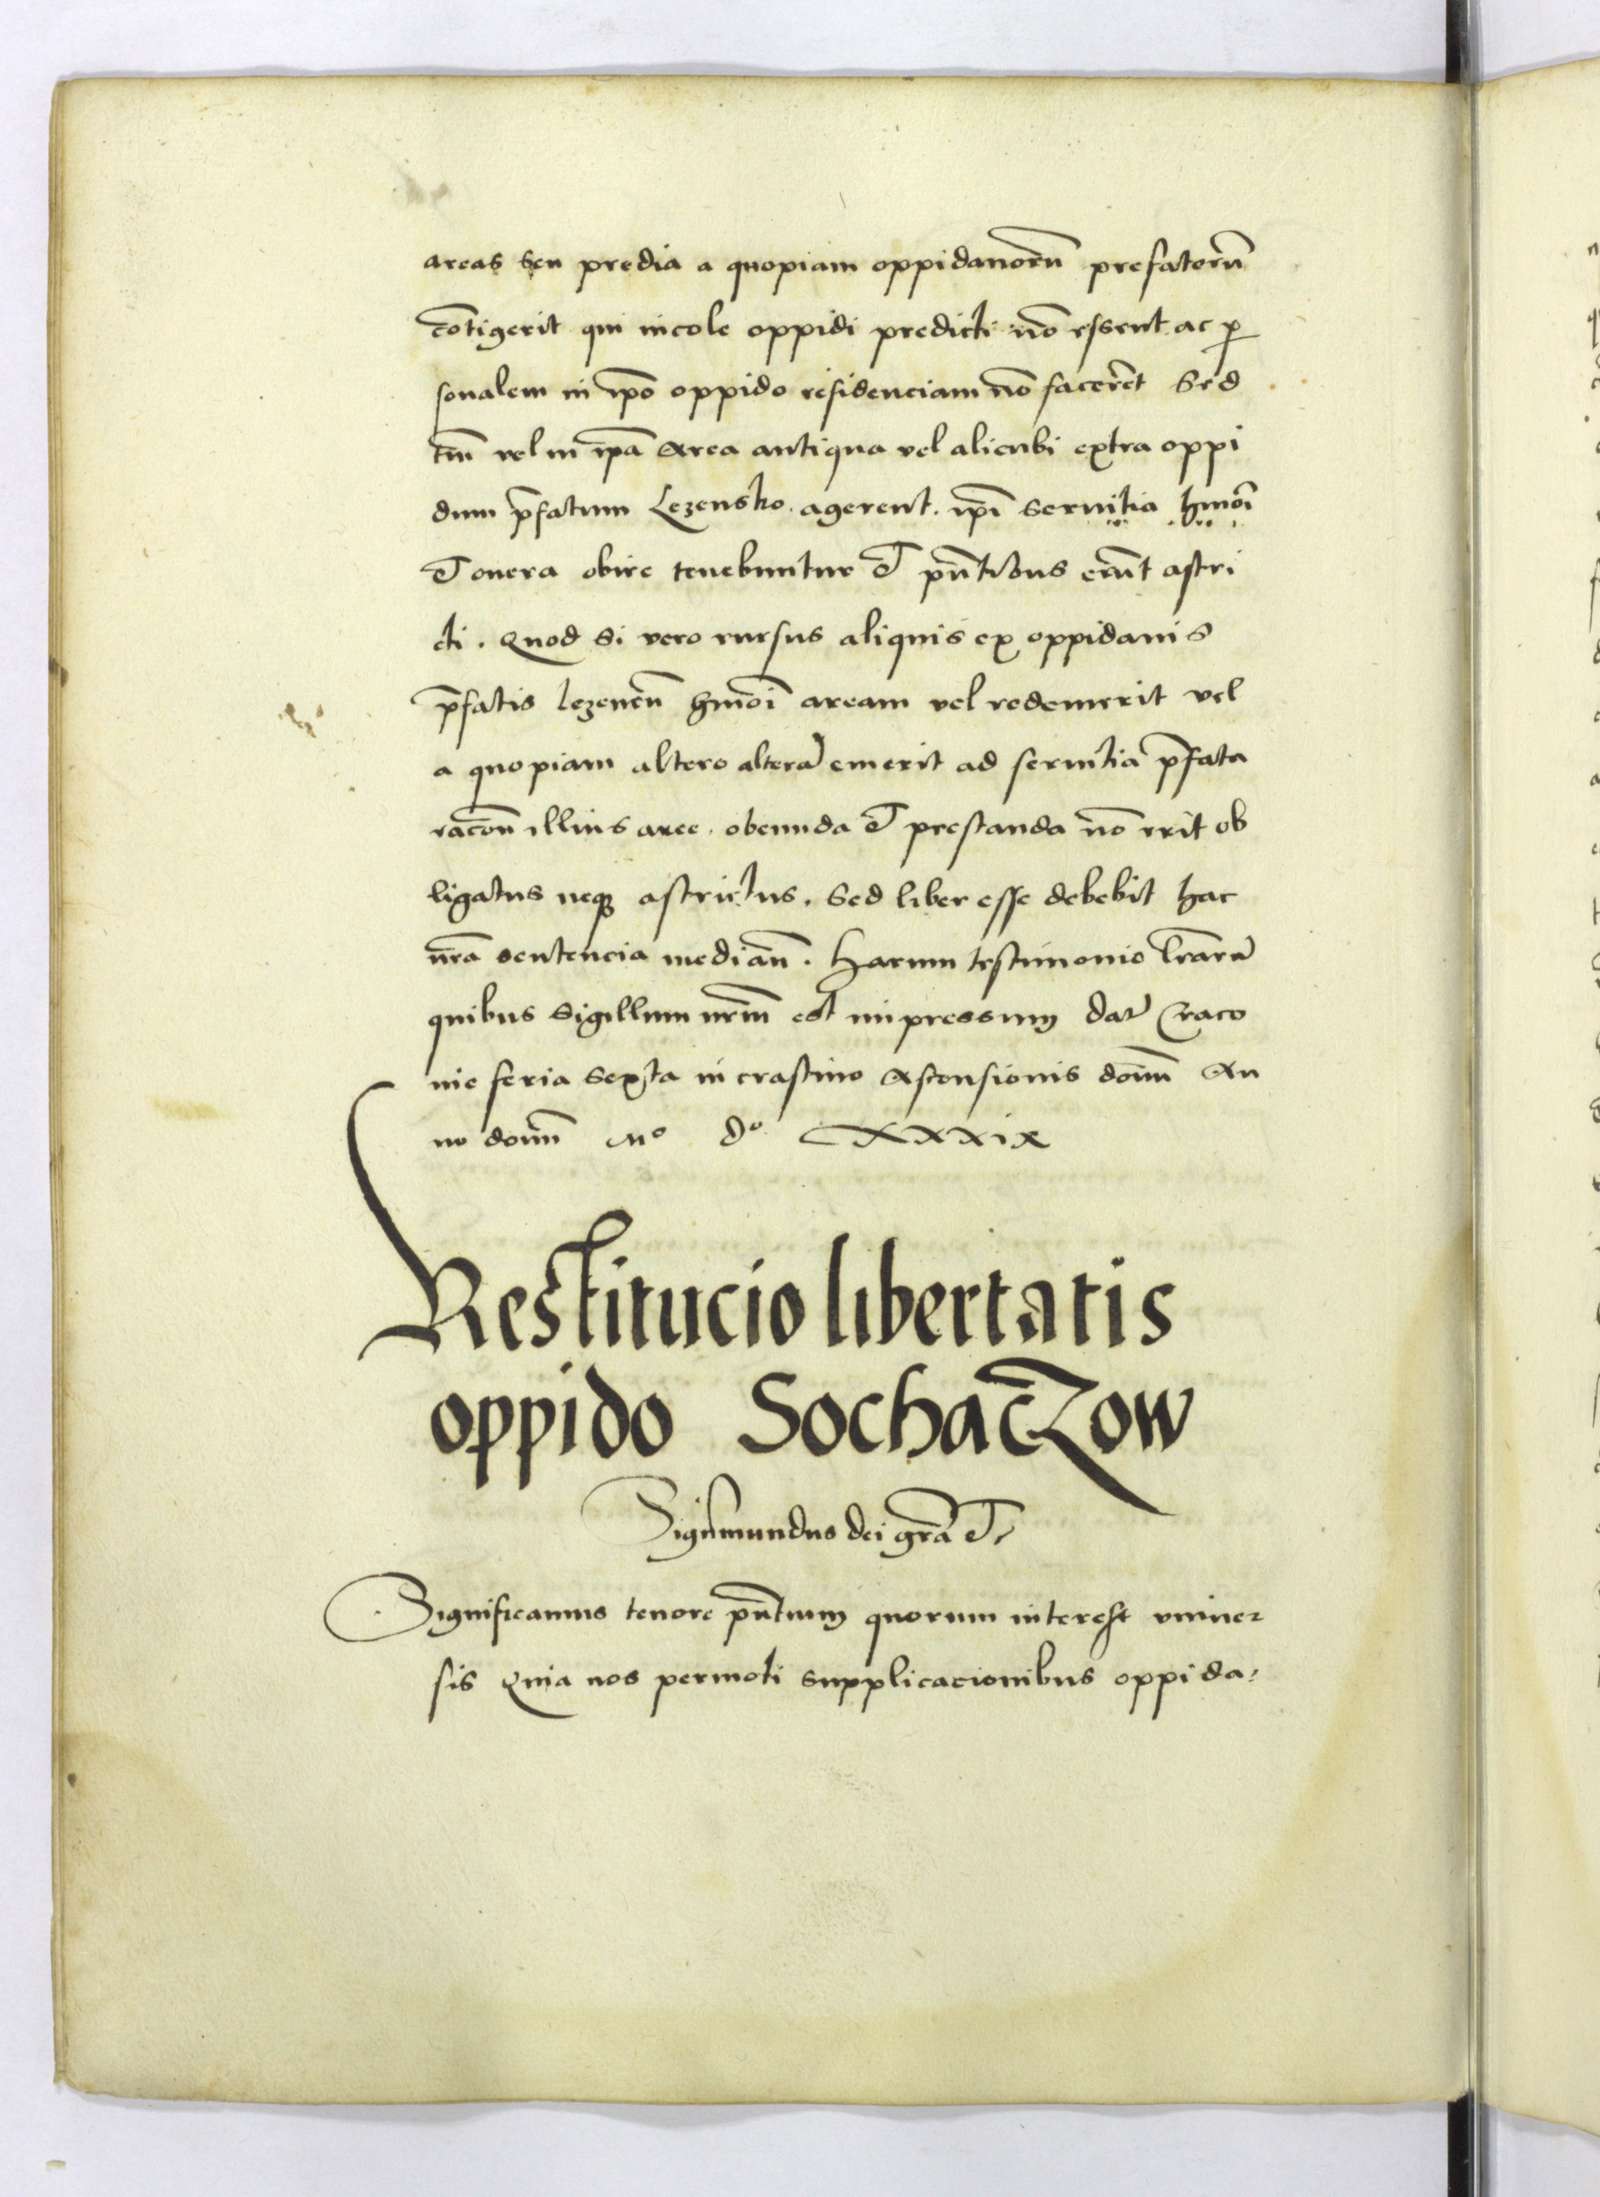 areas seu predia a quopiam oppidanorū prefatorū
cōtigerit qui incole oppidi predicti nō essent ac p̱
sonalem in ip̄o oppido residenciam nō facerēt Sed
tm̄ vel in ip̄a area antiqua vel alicubi extra oppi
dum p̄fatum Lezensko agerent. ip̄i seruitia hmōi
et onera obire tenebuntur et p̄ntibus erūt astri
cti. Quod si vero rursus aliquis ex oppidanis
p̄fatis lezeneñ hmōi aream vel redemerit vel
a quopiam altero alterā emerit ad seruitia p̄fata
racōn illius aree obeunda et prestanda nō erit ob
ligatus neq̨ astrictus. Sed liber esse debebit hac
nr̄a sentencia median̄. Harum testimonio lr̄arū
quibus sigillum nr̄m est impressum dat̄ Craco
uie feria sexta in crastino Ascensionis domī An
no domī Mº dº CXXXIX
Restitucio libertatis
oppido Sochac̄zow
Sigismundus dei gr̄a et
Significamus tenore p̄ntium quorum interest vniuer
sis Quia nos permoti supplicacionibus oppida: